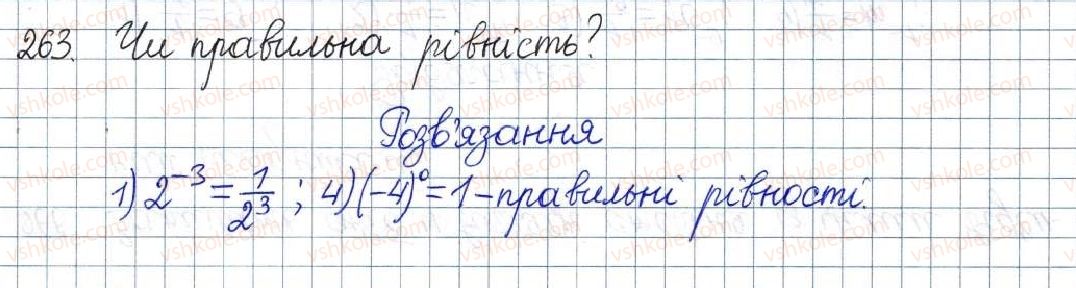 263. Чи правильна рівність?
Розв'язання
1) 2⁻³ = 1/2³ ; 4) (-4)⁰ = 1 – правильні рівності.